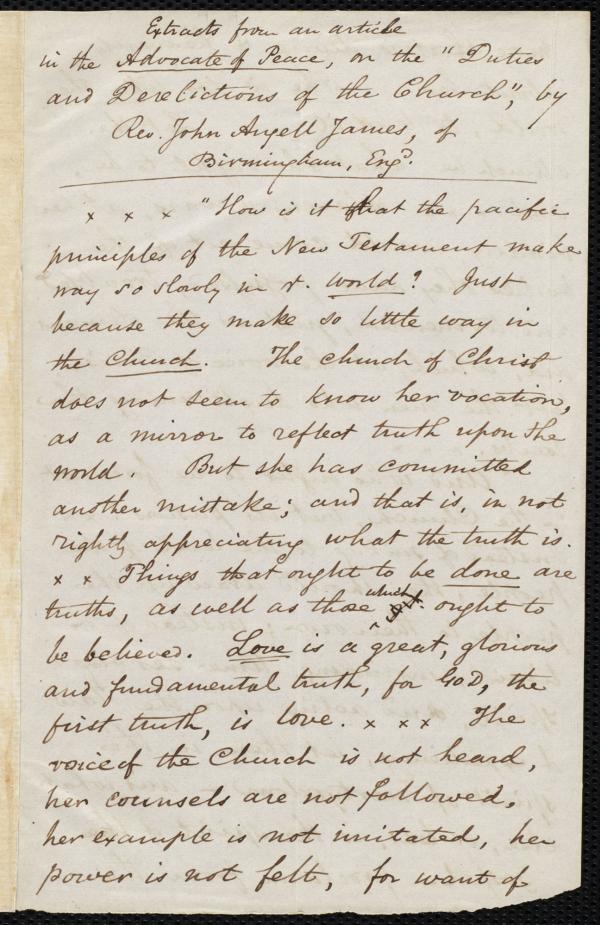 Extracts from an article
in the Advocate of Peace, on the "Duties
and Derelictions of the Church", by
Rev. John Angell James, of
Birmingham, Engd.
x x x "How is it that the pacific
principles of the New Testament make
way so slowly in ye. world? Just
because they make so little way in
the Church. The church of Christ
does not seem to know her vocation,
as a mirror to reflect truth upon the
world. But she has committed
another mistake; and that is, in not
rightly appreciating what the truth is.
x x Things that ought to be done are
truths, as well as those which ought to
be believed. Love is a great, glorious
and fundamental truth, for GOD, the
first truth, is love. x x x The
voice of the Church is not heard,
her counsels are not followed,
her example is not imitated, her
power is not felt, for want of